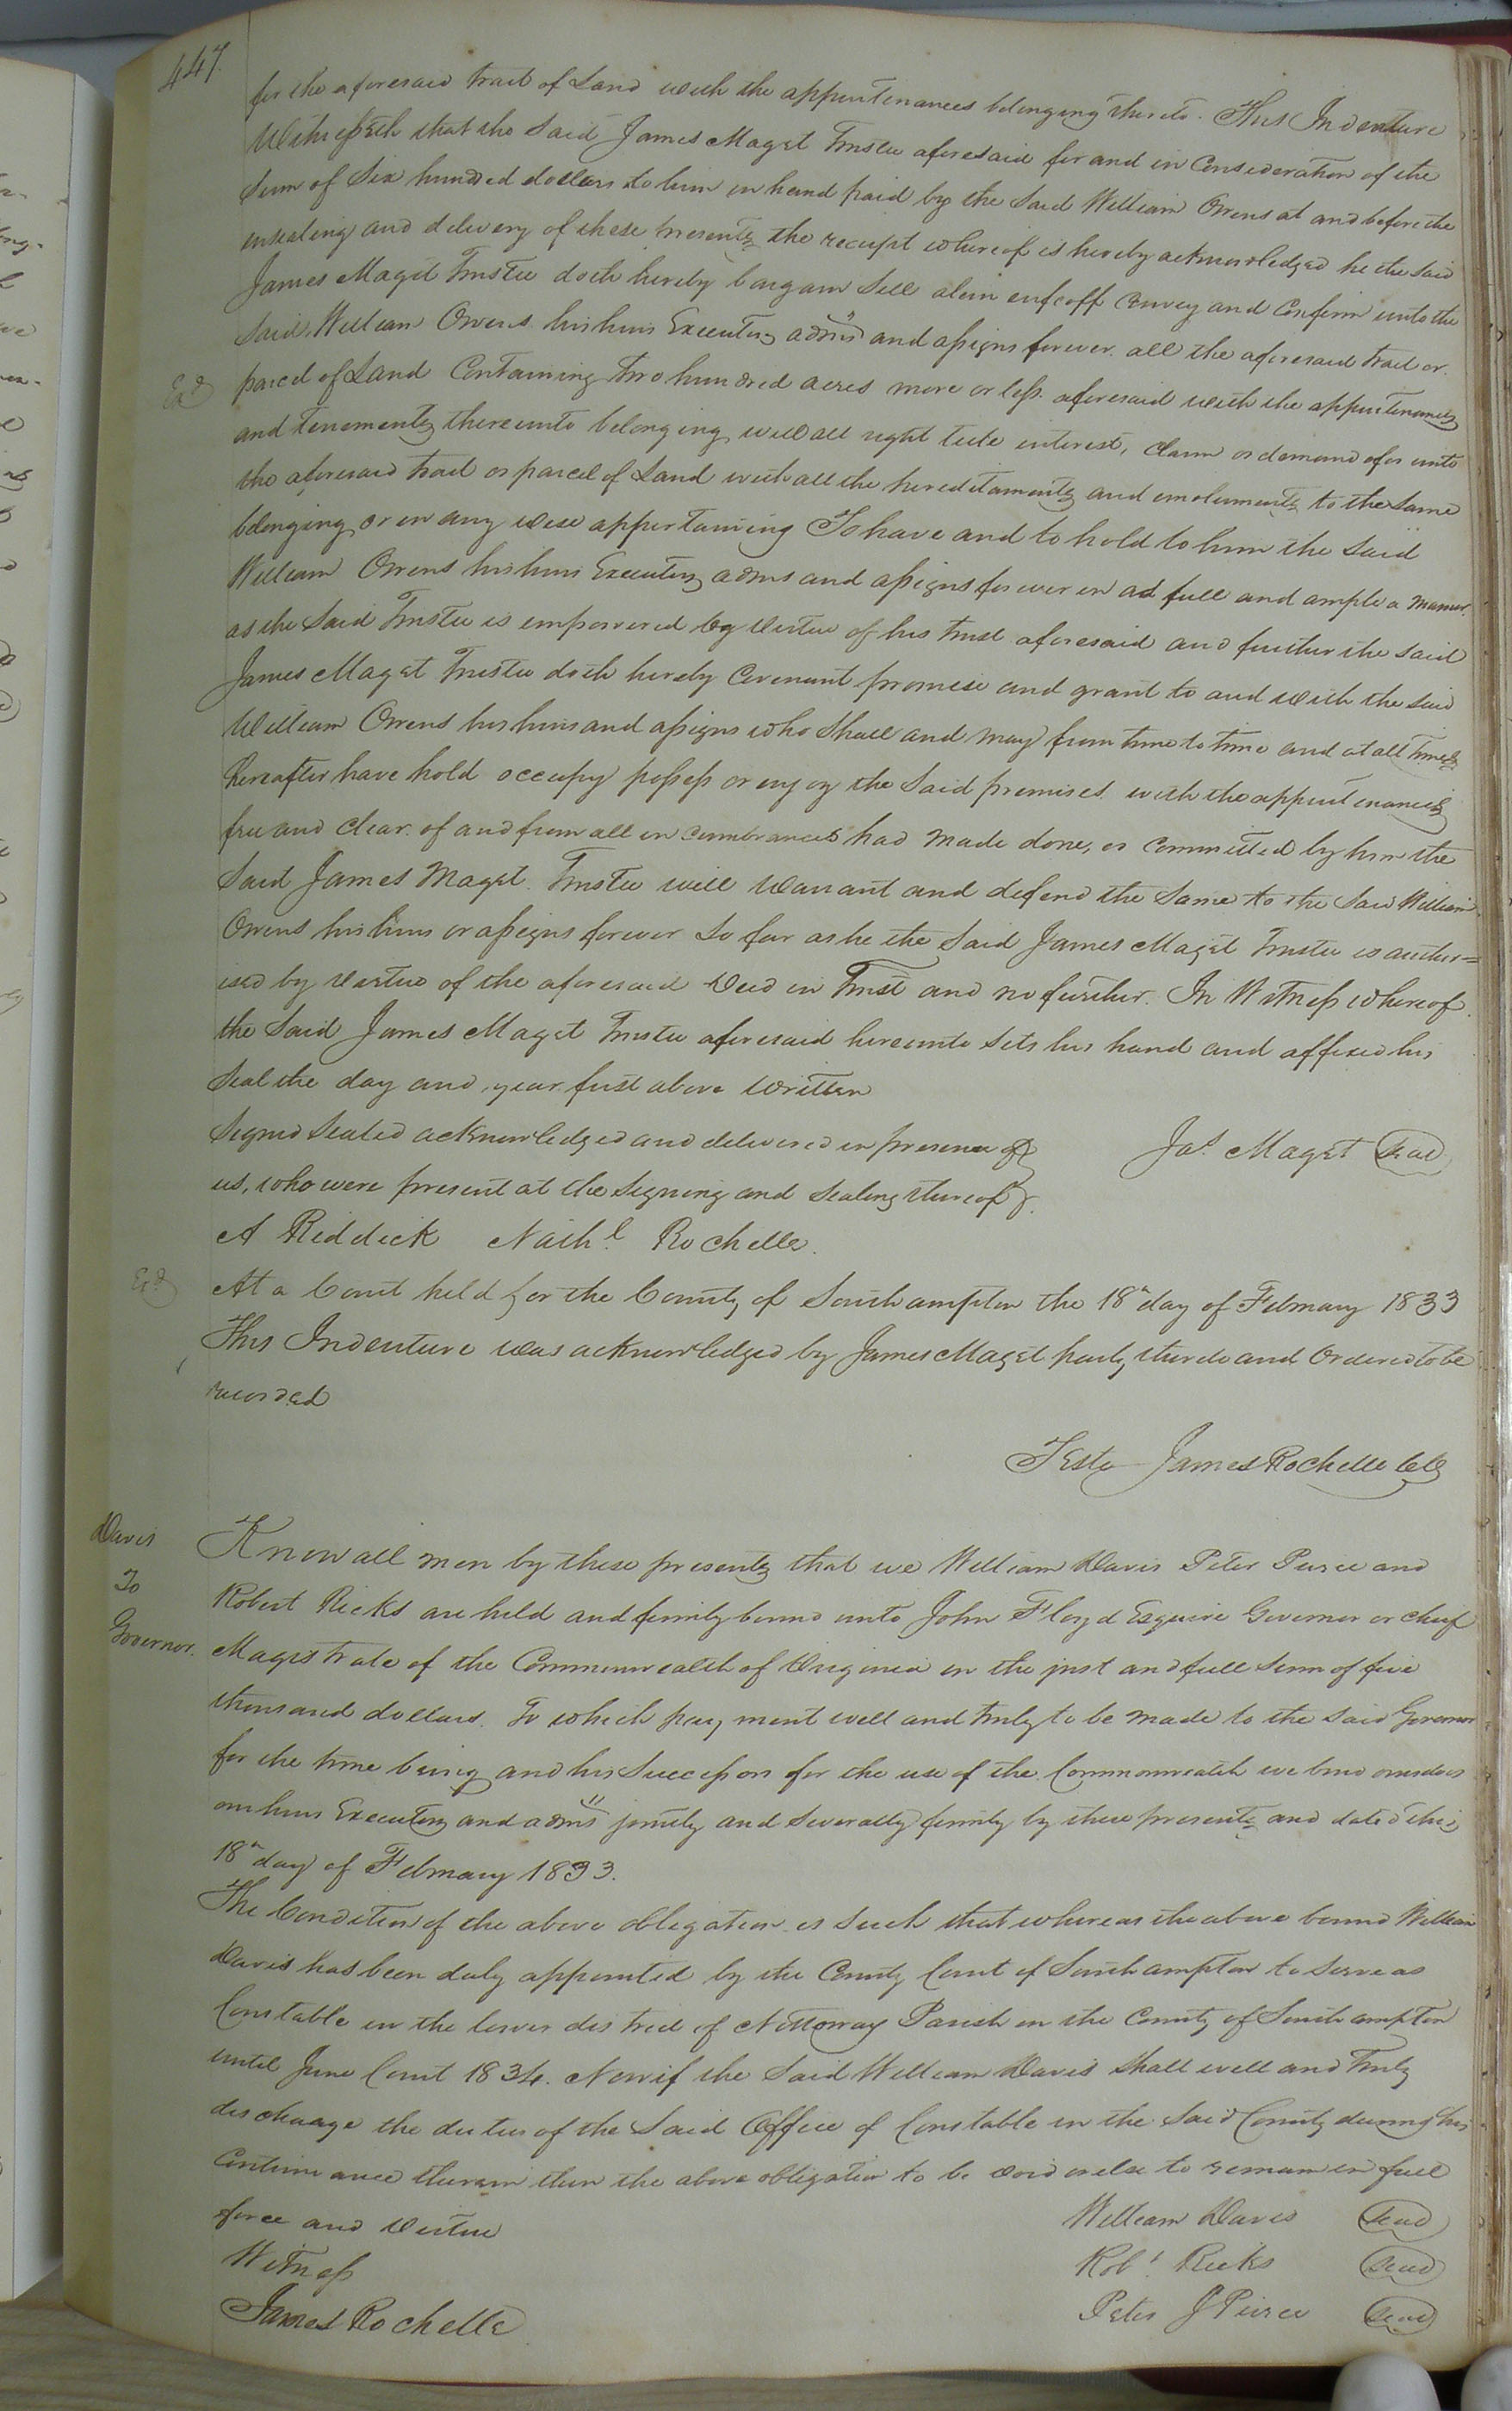 447.
for the aforesaid tract of Land with the appurtenances belonging thereto. This Indenture
Witnesseth that the Said James Maget Trustee aforesaid for and in Consideration of the
Sum of Six hundred dollars to him in hand paid by the Said William Owens at and before the
ensealing and delivery of these presents, the receipt whereof is hereby acknowledged he the said
James Maget Trustee doth hereby bargain Sell alien enfeoff Convey and Confirm unto the
Said William Owens his heirs Executors adms and assigns forever all the aforesaid tract or
Exd
parcel of Land Containing two hundred acres more or less aforesaid with the appurtenances
and tenements thereunto belonging, with all right title interest, Claim or demand of or unto
the aforesaid tract or parcel of Land with all the hereditaments and emoluments to the Same
belonging or in any wise appertaining To have and to hold to him the Said
William Owens his heirs Executors adms and assigns forever in as full and ample a manner
as the Said Trustee is empowered by Virtue of his trust aforesaid and further the said
James Maget Trustee doth hereby Covenant promise and grant to and with the said
William Owens his heirs and assigns who Shall and may from time to time and at all times
hereafter have hold occupy possess or enjoy the Said premises with the appurtenances
free and clear of and from all in cumbrances had made done, or Committed by him the
Said James Maget Trustee will Warrant and defend the Same to the Said William
Owens his heirs or assigns forever So far as he the Said James Maget Trustee is author=
ised by Virtue of the aforesaid Deed in Trust and no further. In Witness whereof
the Said James Maget Trustee aforesaid hereunto Sets his hand and affixed his
Seal the day and year first above Written
Signed Sealed acknowledged and delivered in presence of
Jas. Maget Seal
us, who were present at the Signing and Sealing thereof
A Riddick Nathl. Rochelle.
Exd
At a Court held for the County of Southampton the 18th day of February 1833
This Indenture was acknowledged by James Maget party thereto and Ordered to be
recorded
Teste James Rochelle Clk
Davis
To
Governor.
Know all men by these presents that we William Davis Peter Peirce and
Robert Ricks are held and firmly bound unto John Floyd Esquire Governor or chief
Magistrate of the Commonwealth of Virginia in the just and full Sum of five
thousand dollars. To which payment well and truly to be made to the Said Governor
for the time being and his Successors for the use of the Commonwealth we bind ourselves
our heirs Executors and adms jointly and Severally firmly by these presents and dated this
18th day of February 1833.
The Condition of the above obligation is Such that whereas the above bound William
Davis has been duly appointed by the County Court of Southampton to Serve as
Constable in the lower district of Nottoway Parish in the County of Southampton
until June Court 1834. Now if the Said William Davis Shall well and truly
discharge the duties of the Said Office of Constable in the Said County during his
Continuance therein then the above obligation to be Void or else to remain in full
force and Virtue
William Davis Seal
Witness
Robt. Ricks Seal
James Rochelle
Peter J Peirce Seal